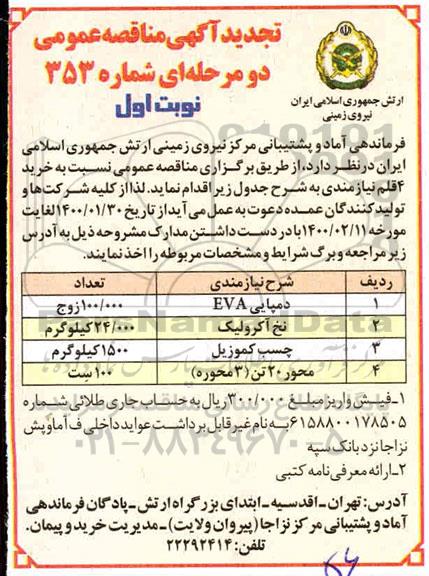 تجدید آگهی مناقصه عمومی
دو مرحله‌ای شماره ۳۵۳
نوبت اول
ارتش جمهوری اسلامی ایران
نیروی زمینی
فرماندهی آماد و پشتیبانی مرکز نیروی زمینی ارتش جمهوری اسلامی
ایران در نظر دارد، از طریق برگزاری مناقصه عمومی نسبت به خرید
۴ قلم نیازمندی به شرح جدول زیر اقدام نماید. لذا از کلیه شرکت‌ها و
تولیدکنندگان عمده دعوت به عمل می‌آید از تاریخ ۱۴۰۰/۰۱/۳۰ لغایت
مورخه ۱۴۰۰/۰۲/۱۱ با در دست داشتن مدارک مشروحه ذیل به آدرس
زیر مراجعه و برگ شرایط و مشخصات مربوطه را اخذ نمایند.
ردیف شرح نیازمندی تعداد
۱ دمپایی EVA ۱۰۰/۰۰۰ زوج
۲ نخ آکرولیک ۲۴/۰۰۰ کیلوگرم
۳ چسب کموزیل ۱۵۰۰ کیلوگرم
۴ محور ۲۰ تن (۳ محوره) ۱۰۰ ست
۱- فیش واریز مبلغ ۳۰۰/۰۰۰ ریال به حساب جاری طلائی شماره
۶۱۵۸۸۰۰۱۷۸۵۰۵ به نام غیر قابل برداشت عواید داخلی ف آماوپش
نزاجا نزد بانک سپه
۲- ارائه معرفی‌نامه کتبی
آدرس: تهران - اقدسیه - ابتدای بزرگراه ارتش - پادگان فرماندهی
آماد و پشتیبانی مرکز نزاجا (پیروان ولایت) - مدیریت خرید و پیمان.
تلفن: ۲۲۲۹۲۴۱۴
۰۲۱-۸۸۳۴۹۶۷۰-۵